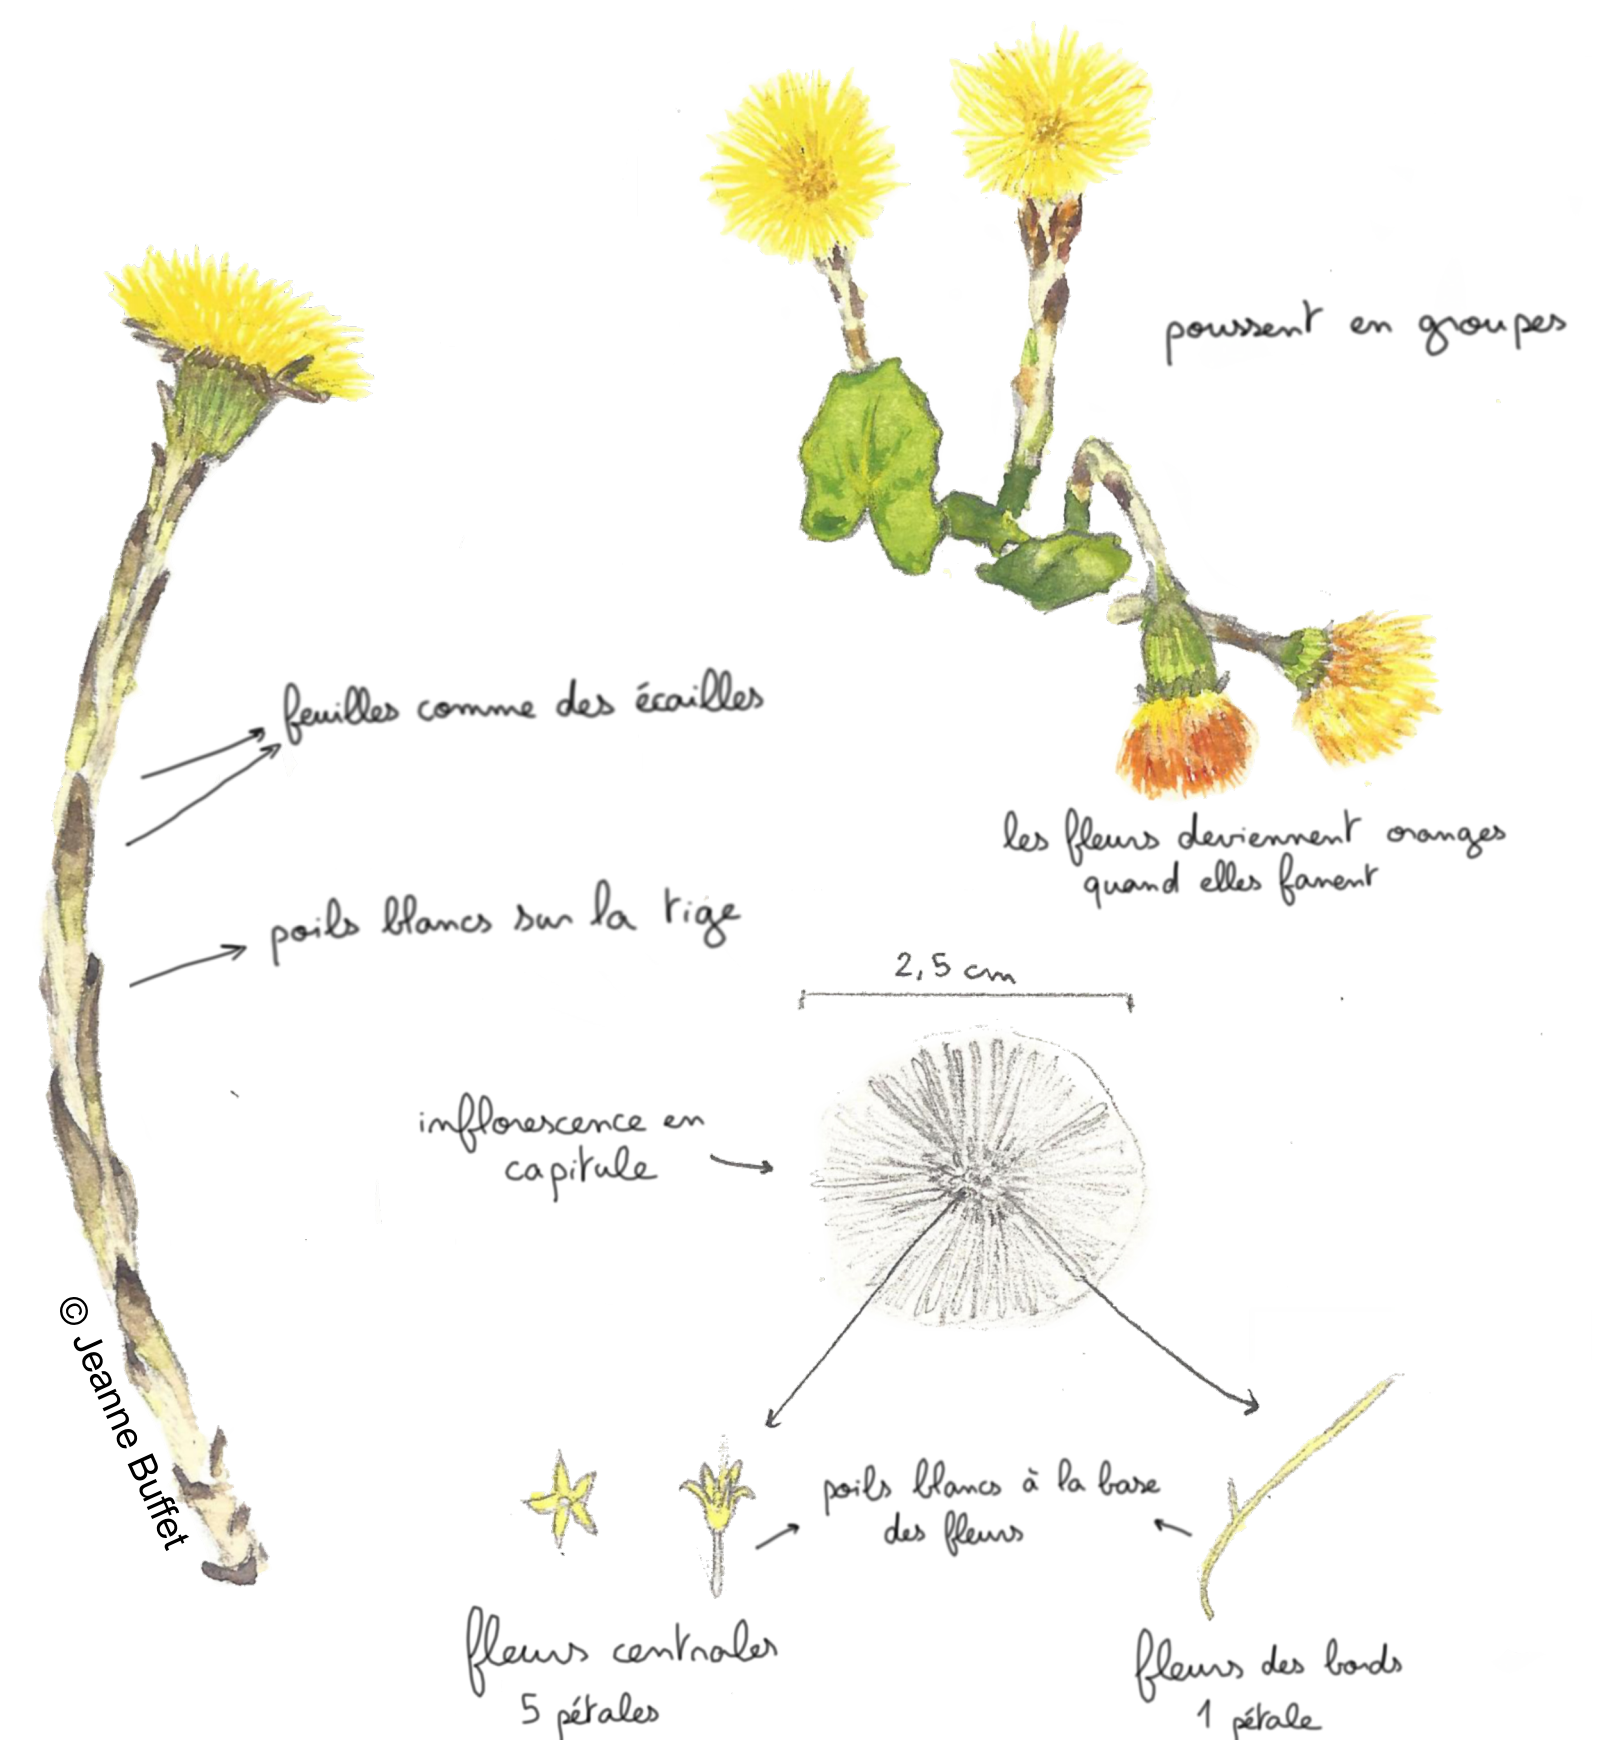 poussent en groupes
feuilles comme des écailles
les fleurs deviennent oranges
quand elles fanent
poils blancs sur la tige
2,5 cm
inflorescence en
capitule
poils blancs à la base
des fleurs
fleurs centrales
5 pétales
fleurs des bords
1 pétale
© Jeanne Buffet